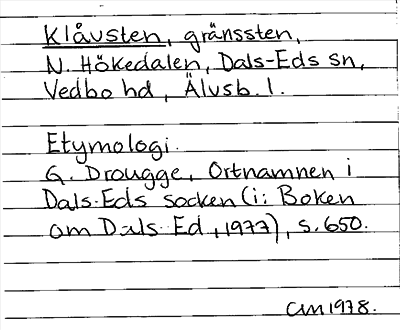 Klåvsten, gränssten,
N. Hökedalen, Dals-Eds sn,
Vedbo hd, Älvsb. l.
Etymologi.
G. Drougge, Ortnamnen i
Dals-Eds socken (i: Boken
om Dals Ed, 1977), s. 650.
CIM 1978.